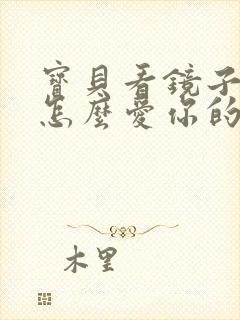 寶貝看鏡子
怎麼愛你的
木里